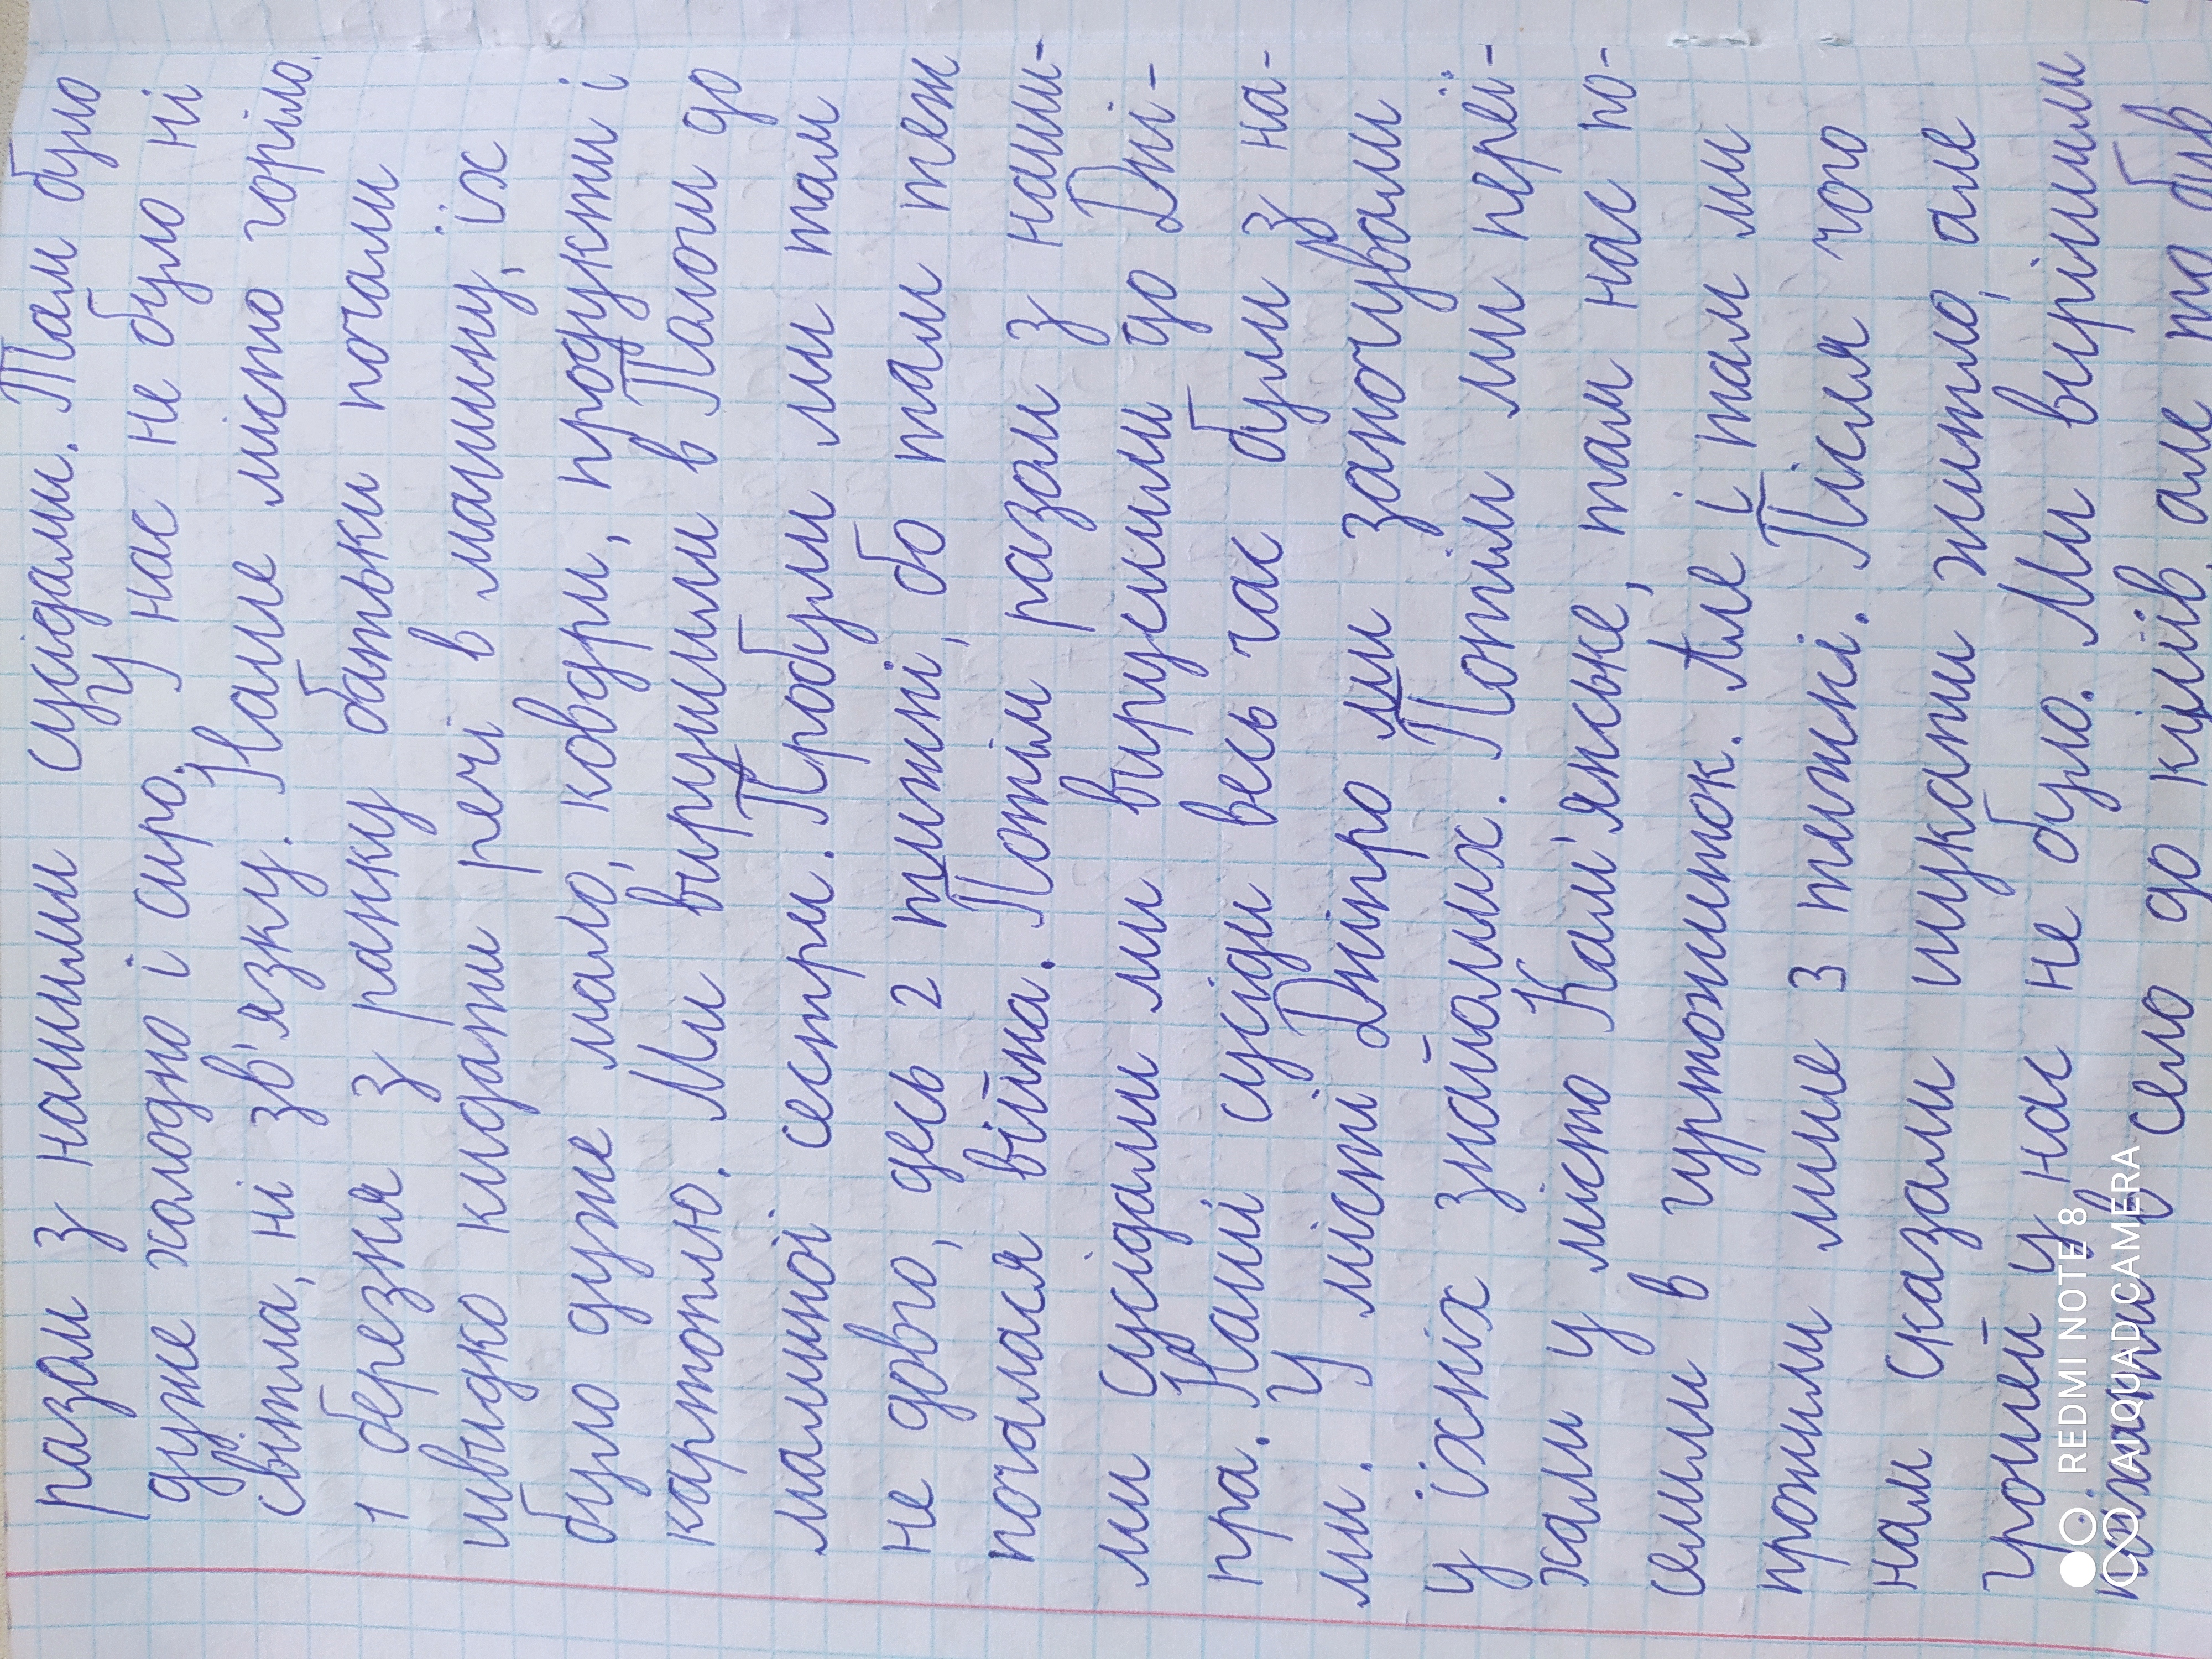 разом з нашими сусідами. Там було
дуже холодно і сиро. У нас не було ні
світла, ні зв'язку. Наше місто горіло.
1 березня з ранку батьки почали
швидко кидати речі в машину, їх
було дуже мало, ковдри, продукти і
картоплю. Ми вирушили в Пологи до
маминої сестри. Пробули ми там
не довго, десь 2 тижні, бо там теж
почалася війна. Потім разом з наши-
ми сусідами ми вирушили до Дні-
пра. Наші сусіди весь час були з на-
ми. У місті Дніпро ми заночували
у їхніх знайомих. Потім ми переї-
хали у місто Кам'янське, там нас по-
селили в гуртожиток. Але і там ми
прожили лише 3 тижні. Після чого
нам сказали шукати житло, але
грошей у нас не було. Ми вирішили
поїхати в село до кумів, але то був
REDMI NOTE 8
AI QUAD CAMERA